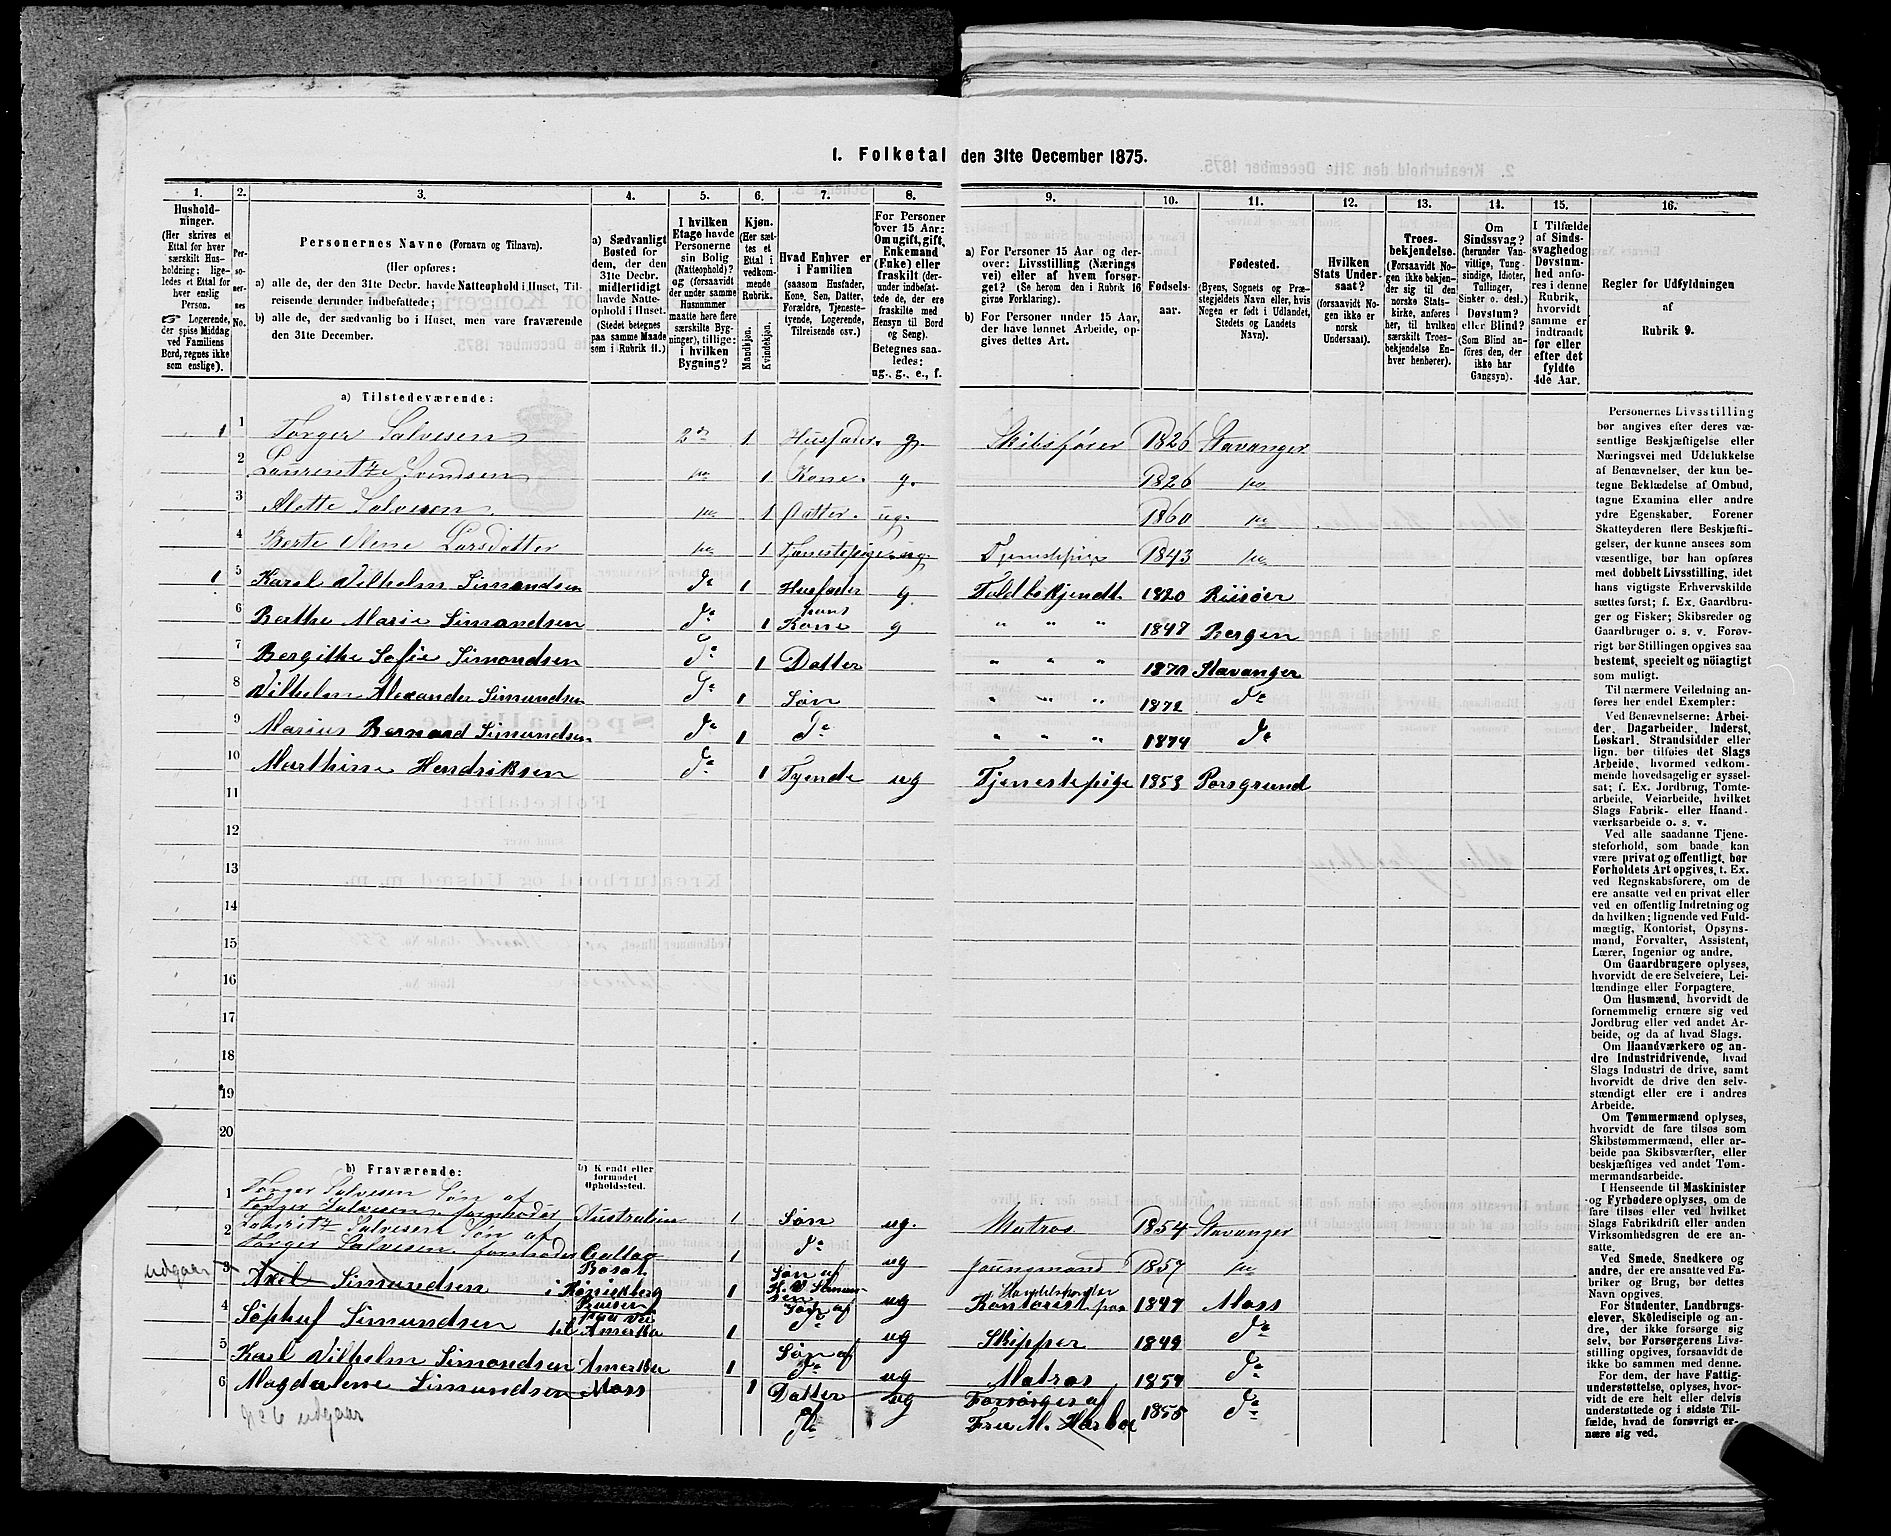 1. Folketal den 31te December 1875.
1. 2. 3. 4. 5. 6. 7. 8. 9. 10. 11. 12. 13. 14. 15. 16.
Hushold-
ninger.
(Her skrives et
Ettal for hver
særskilt Hus-
holdning; lige-
ledes et Ettal for
hver enslig
Person.
Logerende,
der spise Middag
ved Familiens
Bord, regnes ikke
som enslige).
Per-
so-
ner-
nes
No.
Personernes Navne (Fornavn og Tilnavn).
(Her opføres:
a) alle de, der den 31te Decbr. havde Natteophold i Huset, Til-
reisende derunder indbefattede;
b) alle de, der sædvanlig bo i Huset, men vare fraværende
den 31te December.
a) Sædvanligt
Bosted for
dem, der den
31te Decbr.
midlertidigt
havde Natte-
ophold i Huset.
(Stedet betegnes
paa samme Maade
som i Rubrik 11.)
I hvilken
Etage havde
Personerne
sin Bolig
(Natteophold)?
og (forsaavidt
der under samme
Husnummer
maatte høre flere
særskilte Byg-
ninger), tillige:
i hvilken
Bygning?
Kjøn.
(Her sæt-
tes et
Ettal i
vedkom-
mende
Rubrik.
Mandkjøn.
Kvindekjøn.
Hvad Enhver er
i Familien
(saasom Husfader,
Kone, Søn, Datter,
Forældre, Tjeneste-
tyende, Logerende,
Tilreisende osv.)
For Personer
over 15 Aar:
Om ugift, gift,
Enkemand
(Enke) eller
fraskilt (der-
under indbefat-
tede de, der ere
fraskilte med
Hensyn til Bord
og Seng).
Betegnes saa-
ledes:
ug., g., e., f.
a) For Personer 15 Aar og der-
over: Livsstilling (Nærings
vei) eller af hvem forsør-
get? (Se herom den i Rubrik 16
givne Forklaring).
b) For Personer under 15 Aar,
der have lønnet Arbeide, op-
gives dettes Art.
Fødsels-
aar.
Fødested.
(Byens, Sognets og Præ-
stegjeldets Navn eller, hvis
Nogen er født i Udlandet,
Stedets og Landets
Navn).
Hvilken
Stats Under-
saat?
(forsaavidt No-
gen ikke er
norsk
Undersaat).
Troes-
bekjendelse.
(Forsaavidt No-
gen ikke bekjen-
der sig til den
norske Stats-
kirke, anføres
her, til hvilken
særskilt Troes-
bekjendelse En-
hver henhører).
Om
Sindssvag?
(herunder Van-
vittige, Tung-
sindige, Idioter,
Tullinger,
Sinker o. desl.)
Døvstum?
eller Blind?
(Som Blind an-
føres den, der
ikke har
Gangsyn).
I Tilfælde
af Sinds-
svaghed og
Døvstum-
hed anfø-
res i denne
Rubrik,
hvorvidt
samme er
indtraadt
før eller
efter det
fyldte
4de Aar.
Regler for Udfyldningen
af
Rubrik 9.
a) Tilstedeværende:
1 1 Torger Salvesen 2den 1 Husfader. g. Skibsfører 1826 Stavanger
2 Laurentze Svendsen 1 Kone. g. 1826
3 Alette Salvesen 1 Datter. ug. 1860
4 Berte Larsdatter 1 Tjenestepige ug. Tjenestepige 1843
1 5 Karl Vilhelm Simondsen do 1 Husfader g. Toldbetjendt 1820 Riisøer
6 Berthe Marie Simondsen do 1 hans Kone g " " " 1847 Bergen
7 Bergithe Sofie Simondsen do 1 Datter " " " 1870 Stavanger
8 Vilhelm Alexander Simundsen do 1 Søn " " " 1872 do
9 Marius Bernard Simundsen do 1 do " " " 1874 do
10 Marthine Hendriksen do 1 Tyende ug Tjenestepige 1853 Porsgrund
11
12
13
14
15
16
17
18
19
20
b) Fraværende:
b) Kendt eller
formodet
Opholdssted.
1 Torger Salvesen Søn af
Torger Salvesen Australien 1 Søn ug. Matros 1854 Stavanger
2 Lauritz Salvesen Søn af
Torger Salvesen Callao 1 do ug Joungmand 1857
udgaar 3 Axel Simundsen Bosat i 1 Søn af K. V. Simundsen ug Kontorist 1847 Moss
4 Sophus Simundsen Reisen paa vei til Amerika 1 Søn af do ug Skipper 1849 do
5 Karl Vilhelm Simondsen Amerika 1 Søn af do ug Matros 1854 do
6 Magdalene Simundsen Moss 1 Datter do ug Forsørges af Fru M. 1855 do
No 6 udgaar
Personernes Livsstilling
bør angives efter deres væ-
sentlige Beskjæftigelse eller
Næringsvei med Udelukkelse
af Benævnelser, der kun be-
tegne Beklædelse af Ombud,
tagne Examina eller andre
ydre Egenskaber. Forener
Skatteyderen flere Beskjæfti-
gelser, der kunne ansees som
væsentlige, bør han opføres
med dobbelt Livsstilling, idet
hans vigtigste Erhvervskilde
sættes først; f. Ex. Gaardbru-
ger og Fisker; Skibsreder og
Gaardbruger o. s. v. Forøv-
rigt bør Stillingen opgives saa
bestemt, specielt og nöiagtigt
som muligt.
Til nærmere Veiledning an-
føres her endel Exempler:
Ved Benævnelserne: Arbei-
der, Dagarbeider, Inderst,
Løskarl, Strandsidder eller
lign. bør tilføies det Slags
Arbeide, hvormed vedkom-
mende hovedsagelig er syssel-
sat; f. Ex. Jordbrug, Tomte-
arbeide, Veiarbeide, hvilket
Slags Fabrik- eller Haand-
værksarbeide o. s. v.
Ved alle saadanne Tjene-
steforhold, som baade kan
være privat og offentligt, bør
Forholdets Art opgives, t. Ex.
ved Regnskabsførere, om de
ere ansatte ved en privat eller
ved en offentlig Indretning og
da hvilken; lignende ved Fuld-
mægtig, Kontorist, Opsyns-
mand, Forvalter, Assistent,
Lærer, Ingeniør og andre.
Om Gaardbrugere oplyses,
hvorvidt de ere Selveiere, Lei-
lændinge eller Forpagtere.
Om Husmænd, hvorvidt de
fornemmelig ernære sig ved
Jordbrug eller ved andet Ar-
beide, og da af hvad Slags.
Om Haandværkere og an-
dre Industridrivende, hvad
Slags Industri de drive, samt
hvorvidt de drive den selv-
stændigt eller ere i andres
Arbeide.
Om Tømmermænd oplyses,
hvorvidt de fare tilsøs som
Skibstømmermænd, eller ar-
beide paa Skibsværfter, eller
beskjæftiges ved andet Tøm-
mermandsarbeide.
I Henseende til Maskinister
og Fyrbødere oplyses, om de
fare tilsøs eller ved hvilket
Slags Fabrikdrift eller anden
Virksomhedsgren de ere an-
satte.
Ved Smede, Snedkere og
andre, der ere ansatte ved Fa-
briker og Brug, bør dettes
Navn opgives.
For Studenter, Landbrugs-
elever, Skoledisciple og an-
dre, der ikke forsørge sig
selv, bør Forsørgerens Livs-
stilling opgives, forsaavidt de
ikke bo sammen med denne.
For dem, der have Fattig-
understøttelse, oplyses, hvor-
vidt de ere helt eller delvis
understøttede og i sidste Til-
fælde, hvad de forøvrigt er-
nære sig ved.